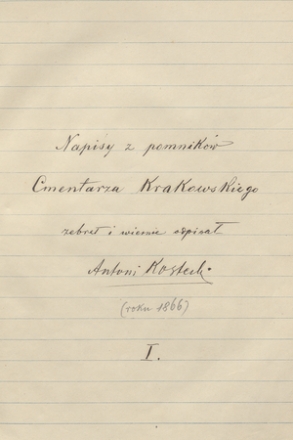 Napisy z pomników
Cmentarza Krakowskiego
zebrał i wiernie opisał
Antoni Kostecki.
(roku 1866)
I.